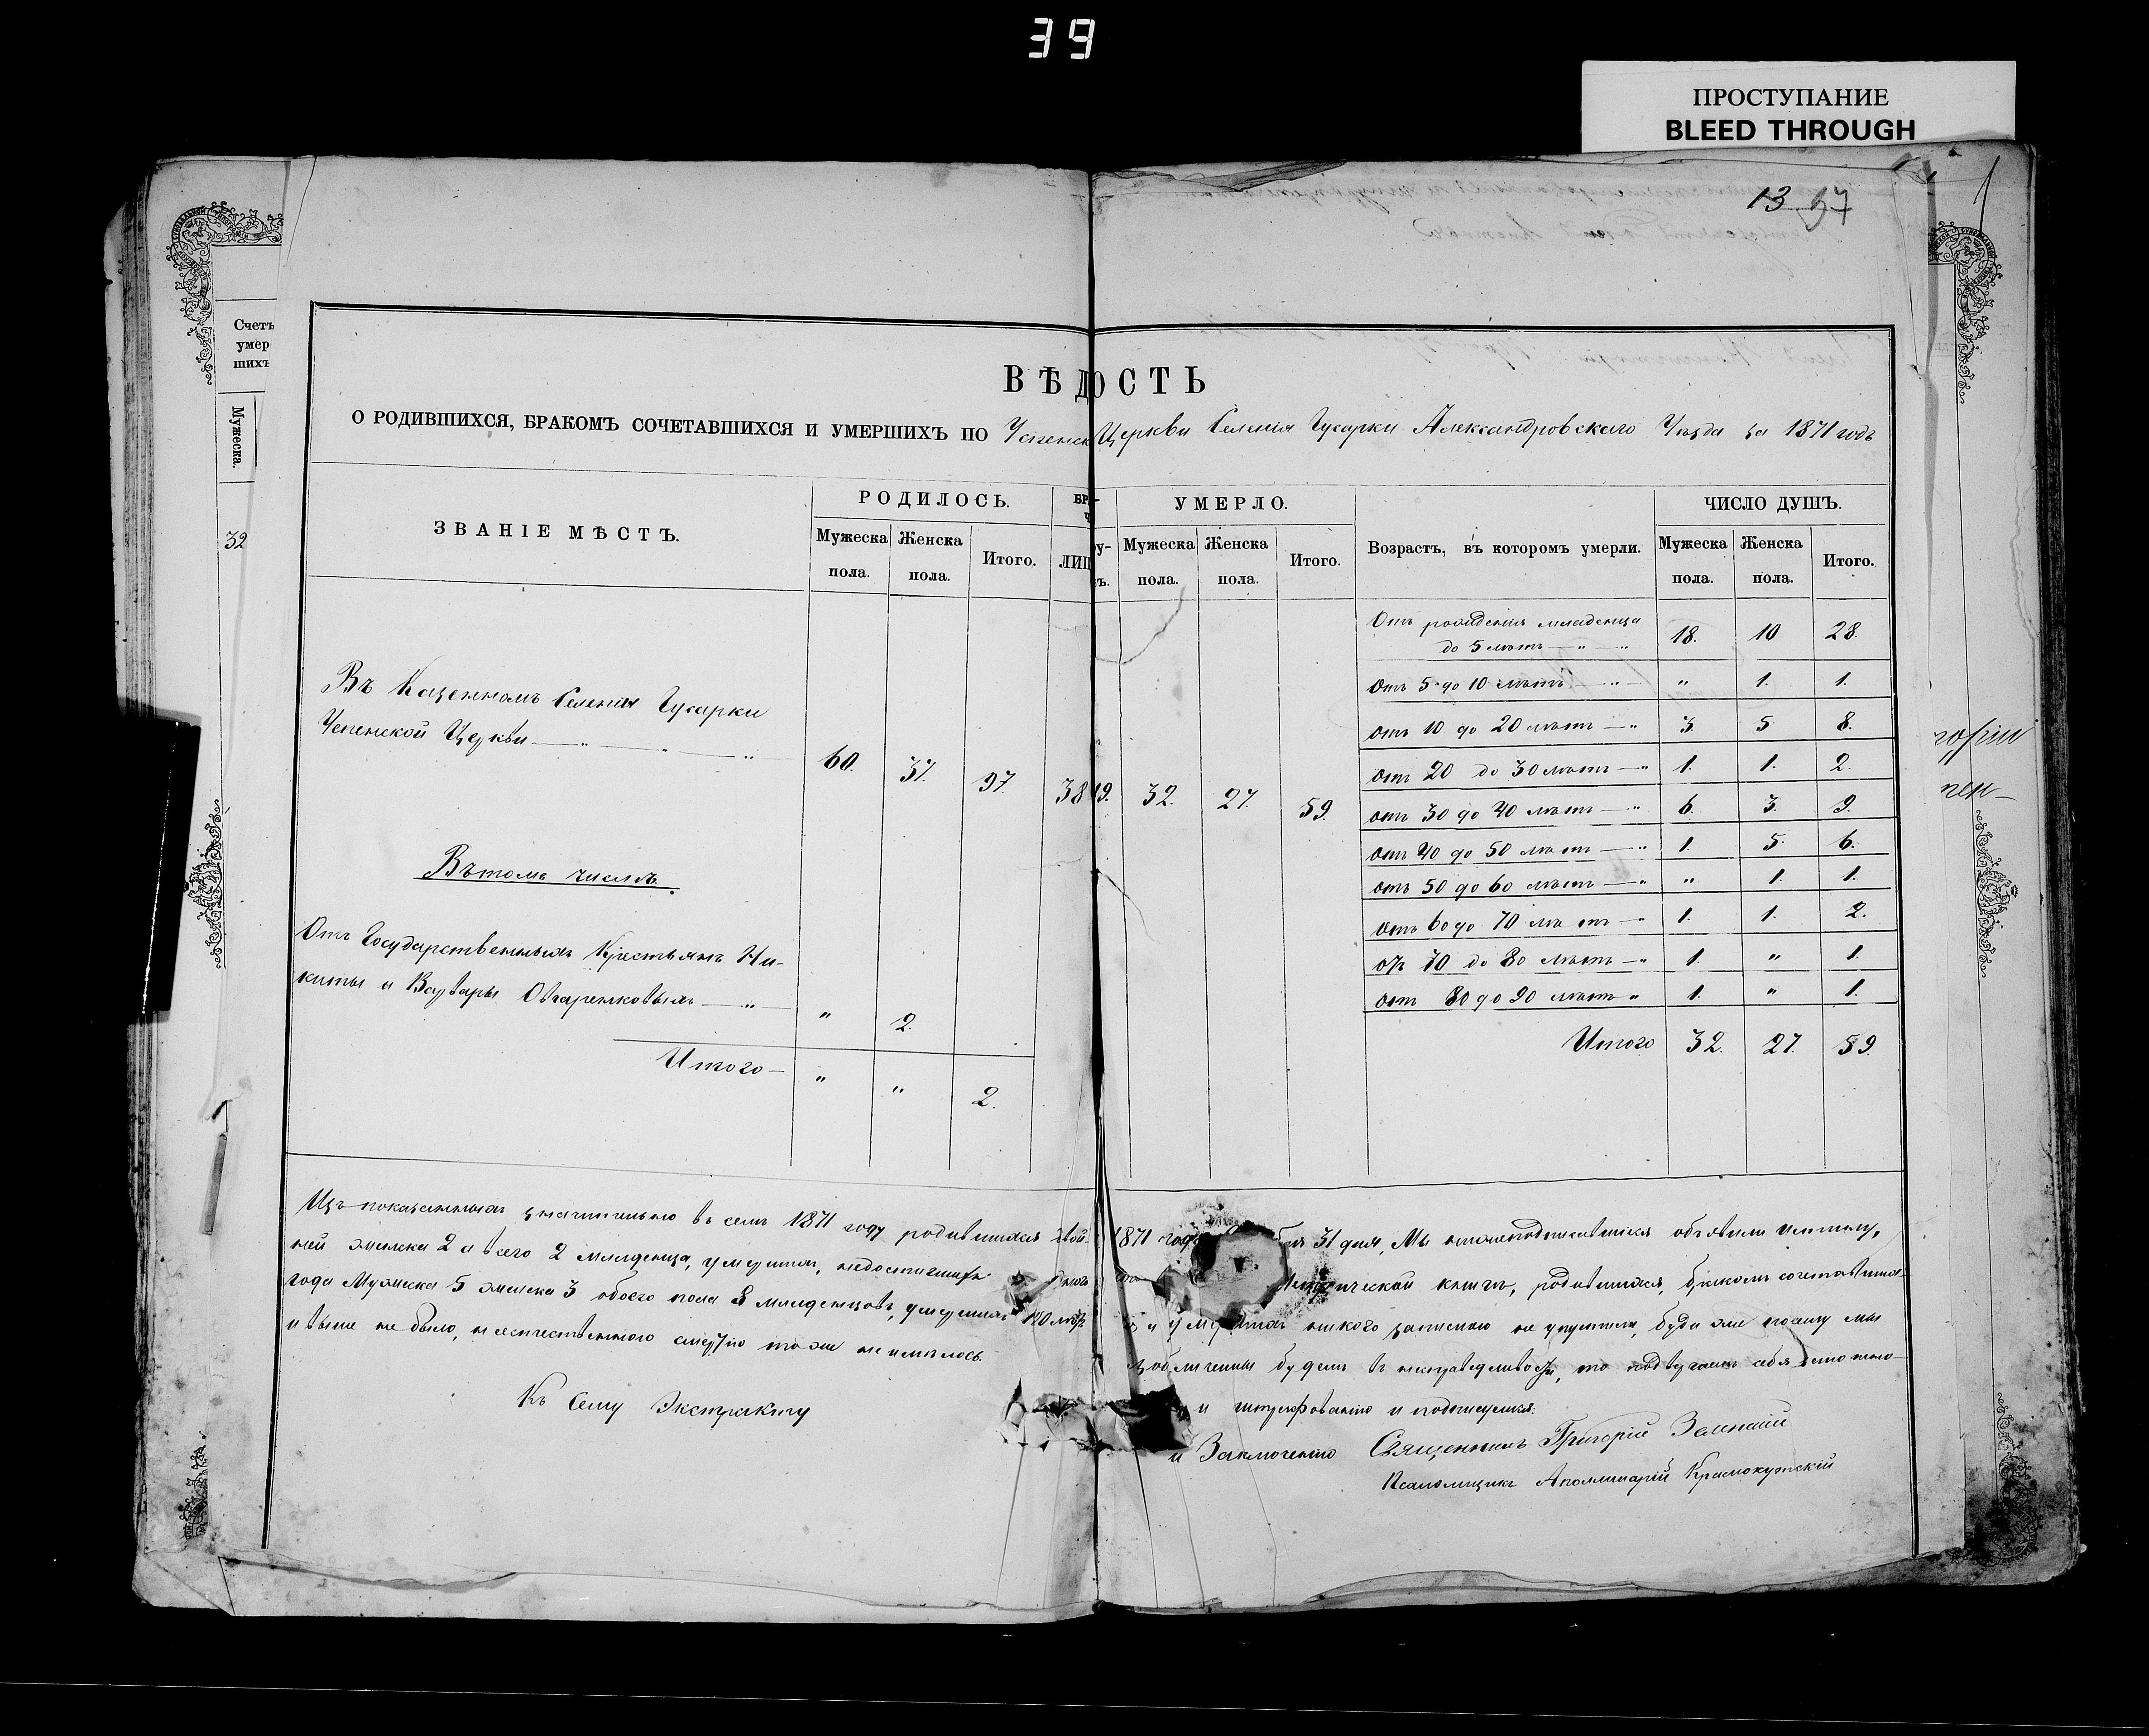 39
ПРОСТУПАНИЕ
BLEED THROUGH
13 97
Счетъ
умер
шихъ
Мужеска.
32
ВѢДОСТЬ
О РОДИВШИХСЯ, БРАКОМЪ СОЧЕТАВШИХСЯ И УМЕРШИХЪ ПО Успенск Церкви Селенія Гусарки Александровскаго Уѣзда за 1871 годъ
ЗВАНІЕ МѢСТЪ.
РОДИЛОСЬ.
Мужеска пола.
Женска пола.
Итого.
УМЕРЛО.
Мужеска пола.
Женска пола.
Итого.
Возрастъ, въ которомъ умерли.
ЧИСЛО ДУШЪ.
Мужеска пола.
Женска пола.
Итого.
Въ Казенномъ Селеніи Гусарки
Успенской Церкви — „ — „ — „ 60. 37. 97. 38 19. 32. 27. 59.
Въ томъ числѣ
Отъ Государственныхъ Крестьянъ Ни-
киты и Варвары Овчаренковыхъ — „ „ 2.
Итого — „ „ 2.
Отъ рожденія младенца
до 5 лѣтъ — „ — „ 18. 10 28.
Отъ 5 до 10 лѣтъ — „ „ 1. 1.
отъ 10 до 20 лѣтъ — „ 3. 5. 8.
отъ 20 до 30 лѣтъ — „ 1. 1. 2.
отъ 30 до 40 лѣтъ — „ 6. 3. 9.
отъ 40 до 50 лѣтъ — „ 1. 5. 6.
отъ 50 до 60 лѣтъ — „ „ 1. 1.
отъ 60 до 70 лѣтъ — „ 1. 1. 2.
отъ 70 до 80 лѣтъ — „ 1. „ 1.
отъ 80 до 90 лѣтъ „ 1. „ 1.
Итого 32. 27. 59.
Изъ показанныхъ значительно въ семъ 1871 году родившихся двой-
ней женска 2 а всего 2 младенца, умершихъ, недостигшихъ
года Мужеска 5 женска 3 обоего пола 8 младенцовъ, умершихъ 120 лѣтъ
и выше не было, неестественною смертію тоже не имѣлось.
Къ Сему Экстракту
1871 года 31 дня, Мы нижеподписавшіеся объявили истину,
метрической книгѣ, родившихся, бракомъ сочетавшихся
и умершихъ никого запискою не упустили, буде же по сему мы
изобличены будемъ въ несправедливости, то подвергаемъ себя
и штрафованію и подписуемся:
и Заключенію Священникъ Григорій
Псаломщикъ Аполлинарій Краснокутскій